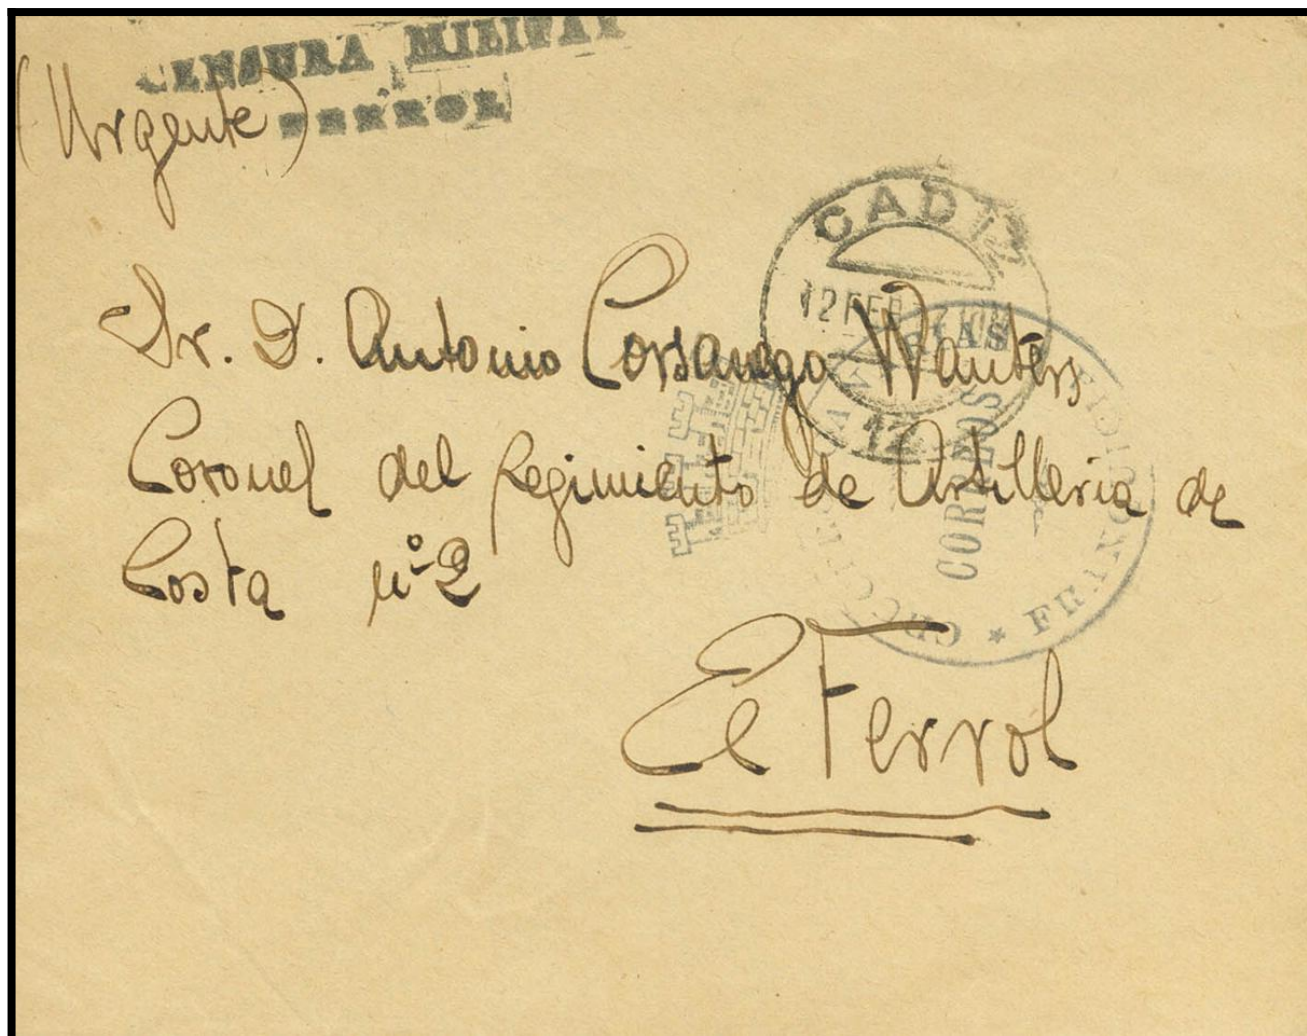 CENSURA MILITAR
FERROL
(Urgente)
CADIZ
12 FEB
12
CORREOS
FRANQUICIA
Sr. D. Antonio Corsanego Wauters
Coronel del Regimiento de Artilleria de
Costa nº 2
El Ferrol